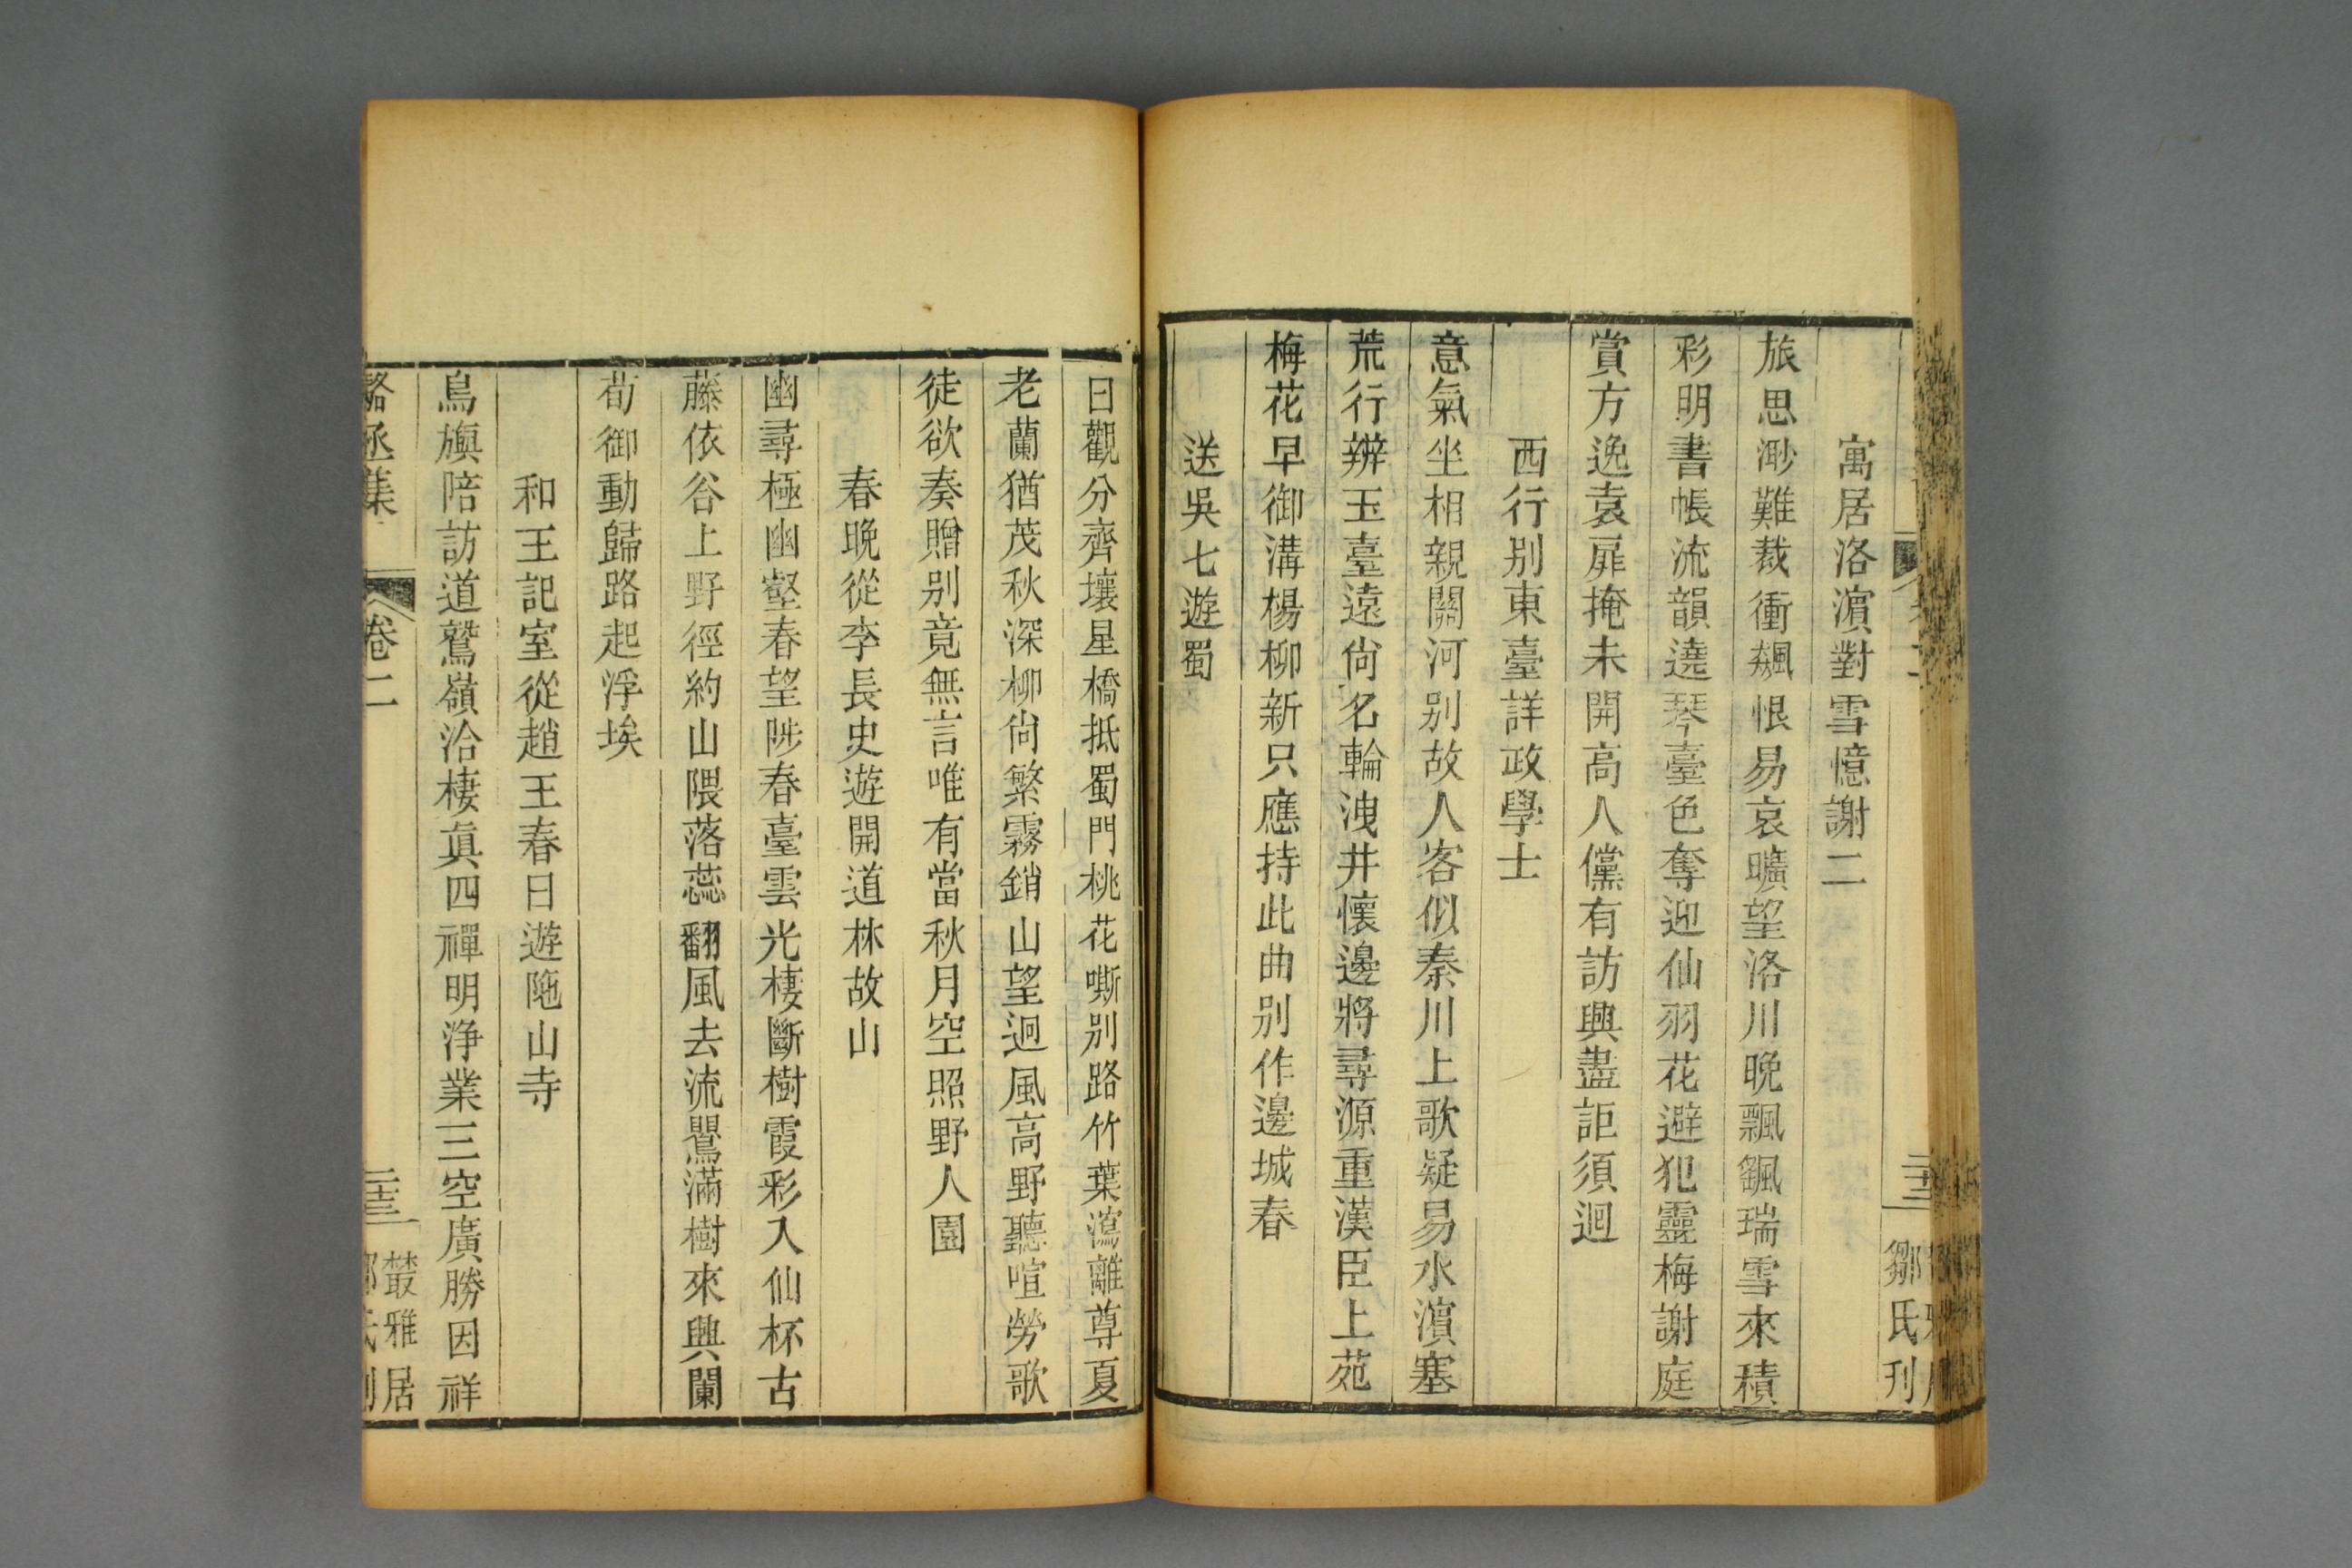 寓居洛濵對雪憶謝二
旅思渺難裁衝飊恨易哀曠望洛川晚飄颻瑞雪來積
彩明書帳流韻遶琴臺色奪迎仙羽花避犯靈梅謝庭
賞方逸袁扉掩未開高人儻有訪興盡詎須迴
西行别東臺詳政學士
意氣坐相親關河别故人客似秦川上歌疑易水濵塞
荒行辨玉臺遠尙名輪洩井懷邊將尋源重漢臣上苑
梅花早御溝楊柳新只應持此曲别作邊城春
送吳七遊蜀
二十二
鄒氏刋
日觀分齊壤星橋抵蜀門桃花嘶别路竹葉瀉離尊夏
老蘭猶茂秋深柳尙繁霧銷山望迥風高野聽喧勞歌
徒欲奏贈别竟無言唯有當秋月空照野人園
春晚從李長史遊開道林故山
幽尋極幽壑春望陟春臺雲光棲斷樹霞彩入仙杯古
藤依谷上野徑約山隈落蕊翻風去流鶯滿樹來興闌
荀御動歸路起浮埃
和王記室從趙王春日遊陁山寺
鳥旟陪訪道鷲嶺洽棲眞四禪明浄業三空廣勝因祥
駱丞集
卷二
二十三
叢雅居
鄒氏刋